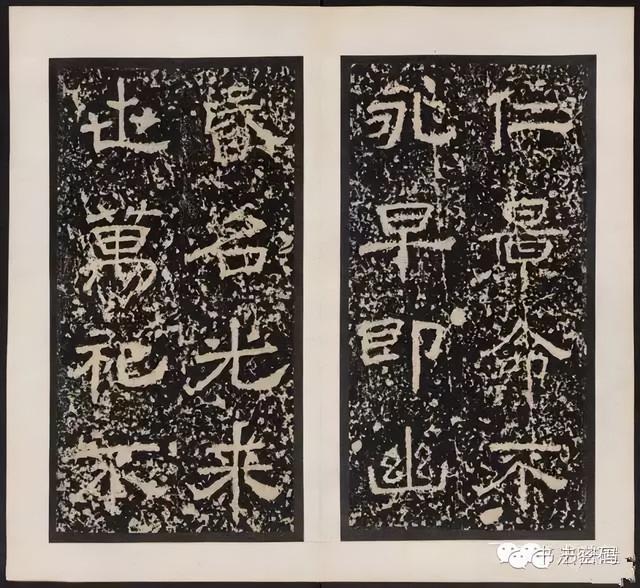 仁景命不
永早即幽
昬名光来
世萬祀不
书法密码